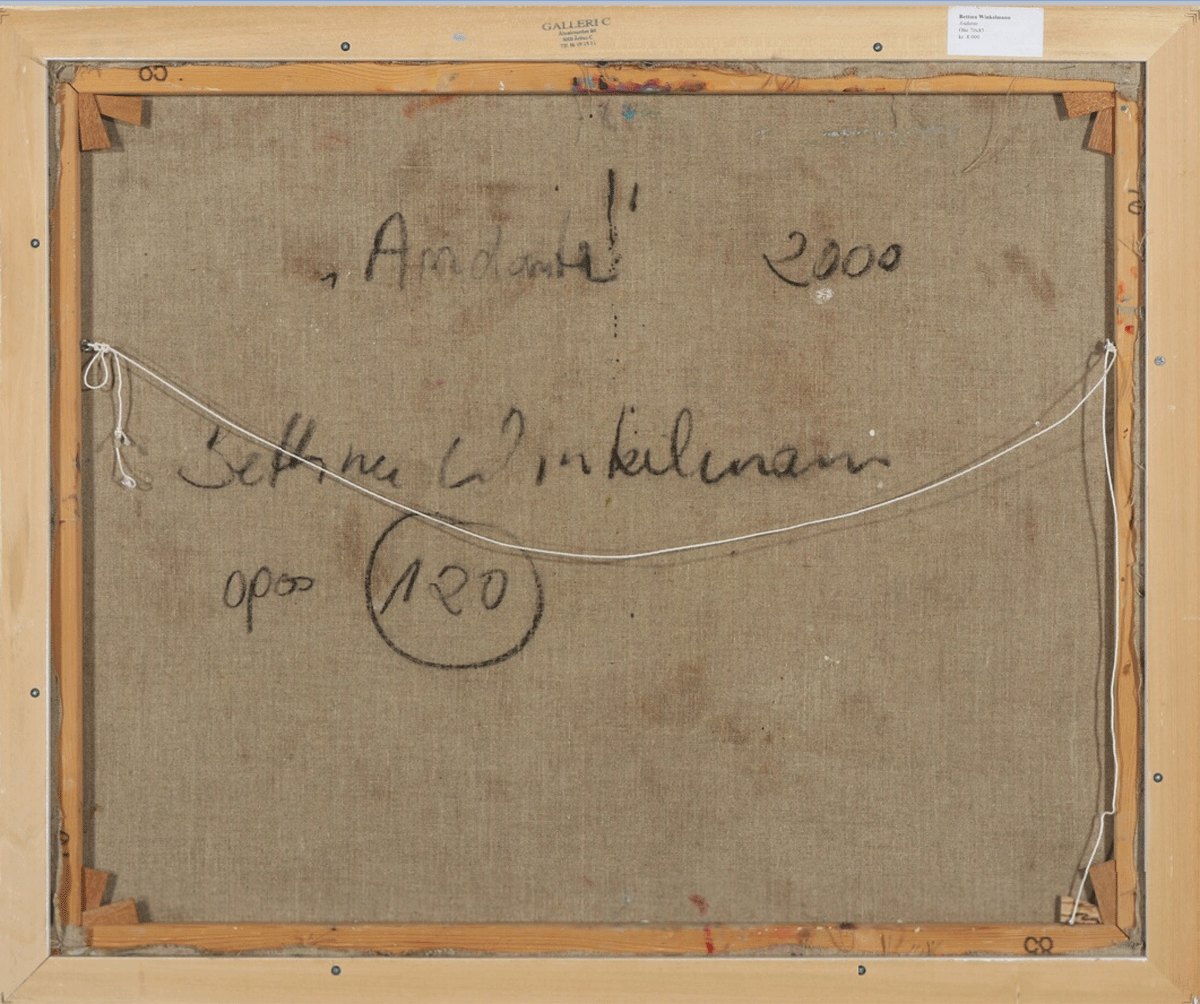 GALLERI C
8000 Århus C
Bettina Winkelmann
Andante
Olie 70x85
kr. 8.000
CO
70
„Andante" 2000
Bettina Winkelmann
opus 120
CO